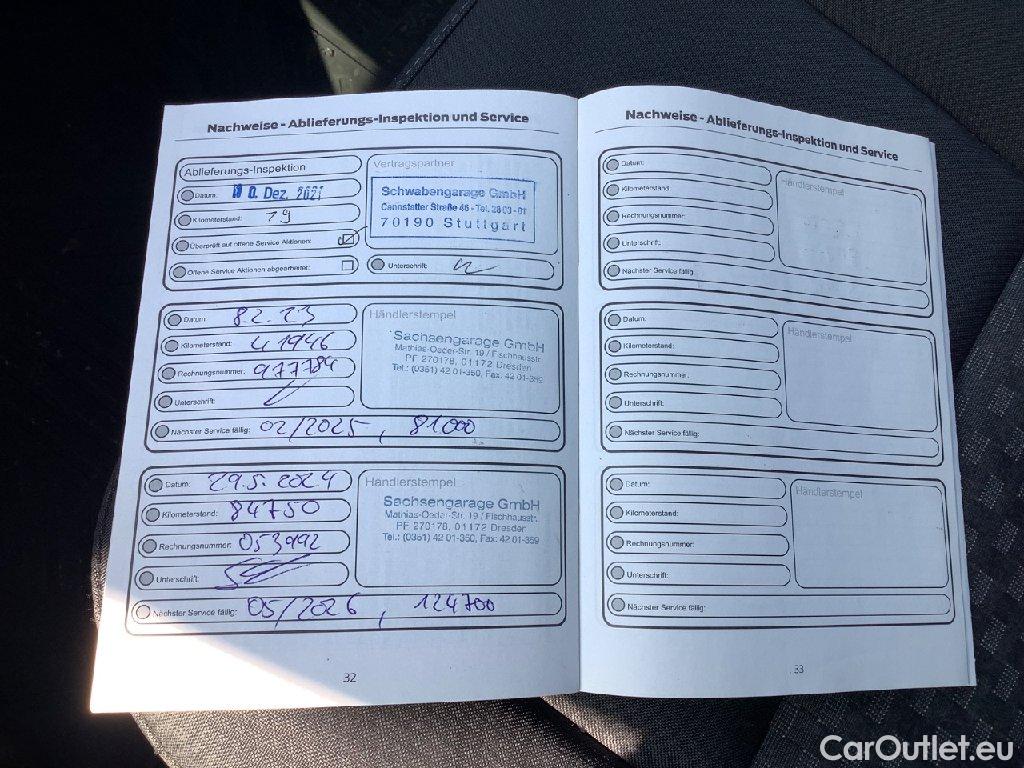 Nachweise - Ablieferungs-Inspektion und Service
Ablieferungs-Inspektion
Datum: 0. Dez. 2021
Kilometerstand: 19
Überprüft auf offene Service Aktionen:
Offene Service Aktionen abgearbeitet:
Vertragspartner
Schwabengarage GmbH
Cannstatter Straße 46 - Tel. 28 03 - 01
70190 Stuttgart
Unterschrift:
Datum: 8.2.23
Kilometerstand: 41946
Rechnungsnummer: 977784
Unterschrift:
Händlerstempel
Sachsengarage GmbH
Mathias-Oeder-Str. 19 / Fischhausstr.
PF 270178, 01172 Dresden
Tel.: (0351) 42 01-350, Fax: 42 01-359
Nächster Service fällig: 02/2025, 81000
Datum: 29.5.2024
Kilometerstand: 84750
Rechnungsnummer: 053992
Unterschrift:
Händlerstempel
Sachsengarage GmbH
Mathias-Oeder-Str. 19 / Fischhausstr.
PF 270178, 01172 Dresden
Tel.: (0351) 42 01-350, Fax: 42 01-359
Nächster Service fällig: 05/2026, 124700
32
Nachweise - Ablieferungs-Inspektion und Service
Datum:
Kilometerstand:
Rechnungsnummer:
Unterschrift:
Händlerstempel
Nächster Service fällig:
Datum:
Kilometerstand:
Rechnungsnummer:
Unterschrift:
Händlerstempel
Nächster Service fällig:
Datum:
Kilometerstand:
Rechnungsnummer:
Unterschrift:
Händlerstempel
Nächster Service fällig:
33
CarOutlet.eu